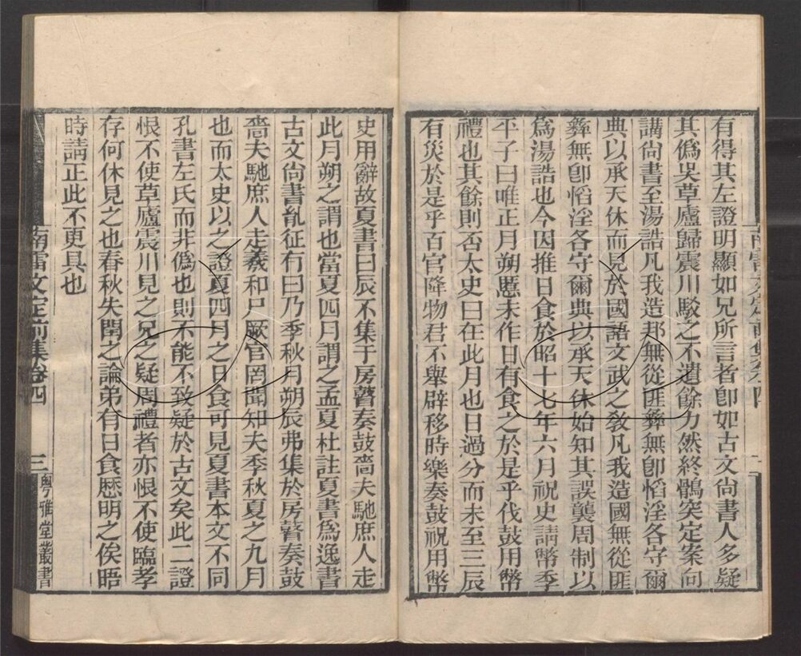 有得其左證明顯如兄所言者卽如古文尙書人多疑
其僞吳草廬歸震川駁之不遺餘力然終鶻突定案向
講尙書至湯誥凡我造邦無從匪彝無卽慆淫各守爾
典以承天休而見於國語文武之敎凡我造國無從匪
彝無卽慆淫各守爾典以承天休始知其誤襲周制以
爲湯誥也今因推日食於昭十七年六月祝史請幣季
平子曰唯正月朔慝未作日有食之於是乎伐鼓用幣
禮也其餘則否太史曰在此月也日過分而未至三辰
有災於是乎百官降物君不舉辟移時樂奏鼓祝用幣
史用辭故夏書曰辰不集于房瞽奏鼓嗇夫馳庶人走
此月朔之謂也當夏四月謂之孟夏杜註夏書爲逸書
古文尙書胤征有曰乃季秋月朔辰弗集於房瞽奏鼓
嗇夫馳庶人走羲和尸厥官罔聞知夫季秋夏之九月
也而太史以之證夏四月之日食可見夏書本文不同
孔書左氏而非僞也則不能不致疑於古文矣此二證
恨不使草廬震川見之兄之疑周禮者亦恨不使臨孝
存何休見之也春秋失閏之論弟有日食歷明之俟晤
時請正此不更具也
南雷文定前集卷四
三
粵雅堂叢書